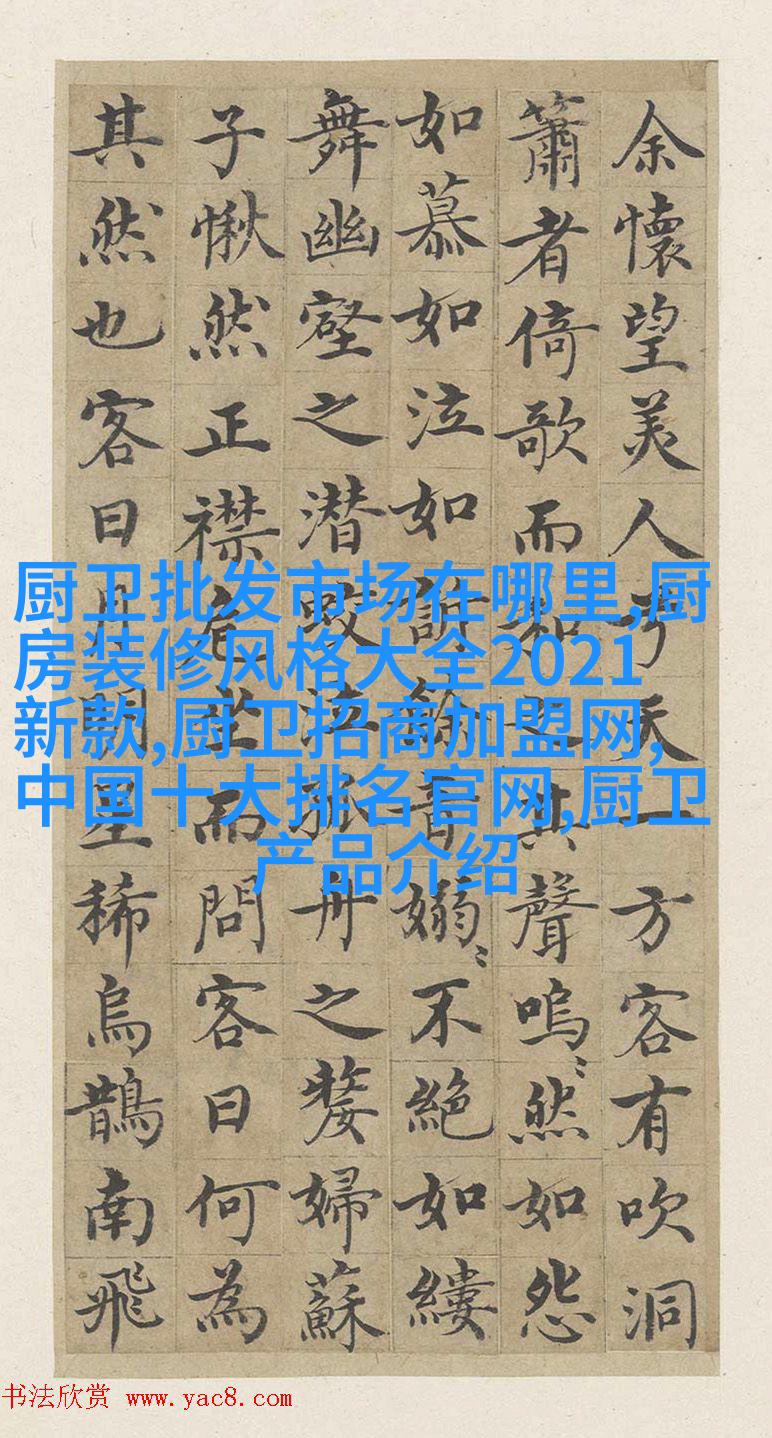 余懷望美人兮天一方客有吹洞
簫者倚歌而和之其聲嗚〻然如怨
如慕如泣如訴餘音嫋〻不絕如縷
舞幽壑之潛蛟泣孤舟之嫠婦蘇
子愀然正襟危坐而問客曰何為
其然也客曰月明星稀烏鵲南飛
厨卫批发市场在哪里,厨
房装修风格大全2021
新款,厨卫招商加盟网,
中国十大排名官网,厨卫
产品介绍
书法欣赏 www.yac8.com